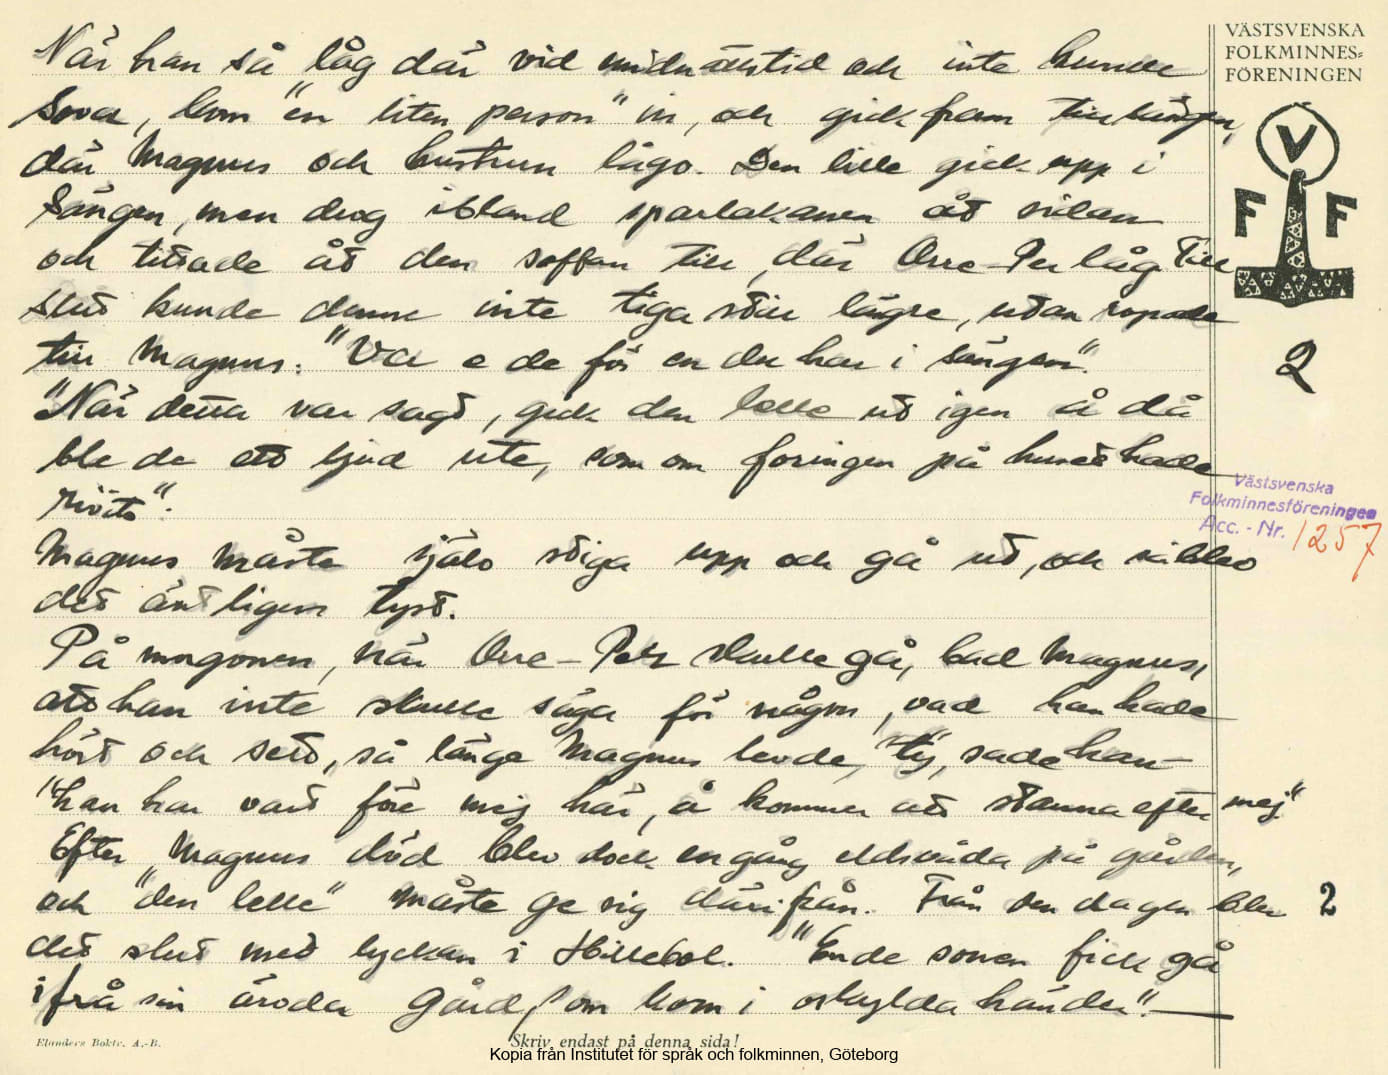 När han så låg där vid midnattstid och inte kunde
sova, kom "en liten person" in, och gick fram till sängen,
där Magnus och hustrun lågo. Den lille gick upp i
sängen, men drog ibland sparlakanen åt sidan
och tittade åt den soffan till, där Orre-Per låg. Till
slut kunde denne inte tiga still längre, utan ropade
till Magnus: "Va e de för en du har i sängen".
"När detta var sagt, gick den lelle ut igen å då
ble de ett ljud ute, som om foringen på huset hade
rivits".
Magnus måste själv stiga upp och gå ut, och så blev
det äntligen tyst.
På morgonen, när Orre-Per skulle gå, bad Magnus,
att han inte skulle säga för någon, vad han hade
hört och sett, så länge Magnus levde, ty, sade han-
"han har vart före mej här, å kommer att stanna efter mej"
Efter Magnus död blev dock en gång eldsvåda på gården,
och "den lelle" måste ge sig därifrån. Från den dagen blev
det slut med lyckan i Hillebol. "Ende sonen fick gå
ifrå sin ärvda gård, som kom i oskylda händer".
VÄSTSVENSKA
FOLKMINNES=
FÖRENINGEN
V
F F
2
Västsvenska
Folkminnesföreningen
Acc. - Nr. 1257
2
Elanders Boktr. A.-B.
Skriv endast på denna sida!
Kopia från Institutet för språk och folkminnen, Göteborg